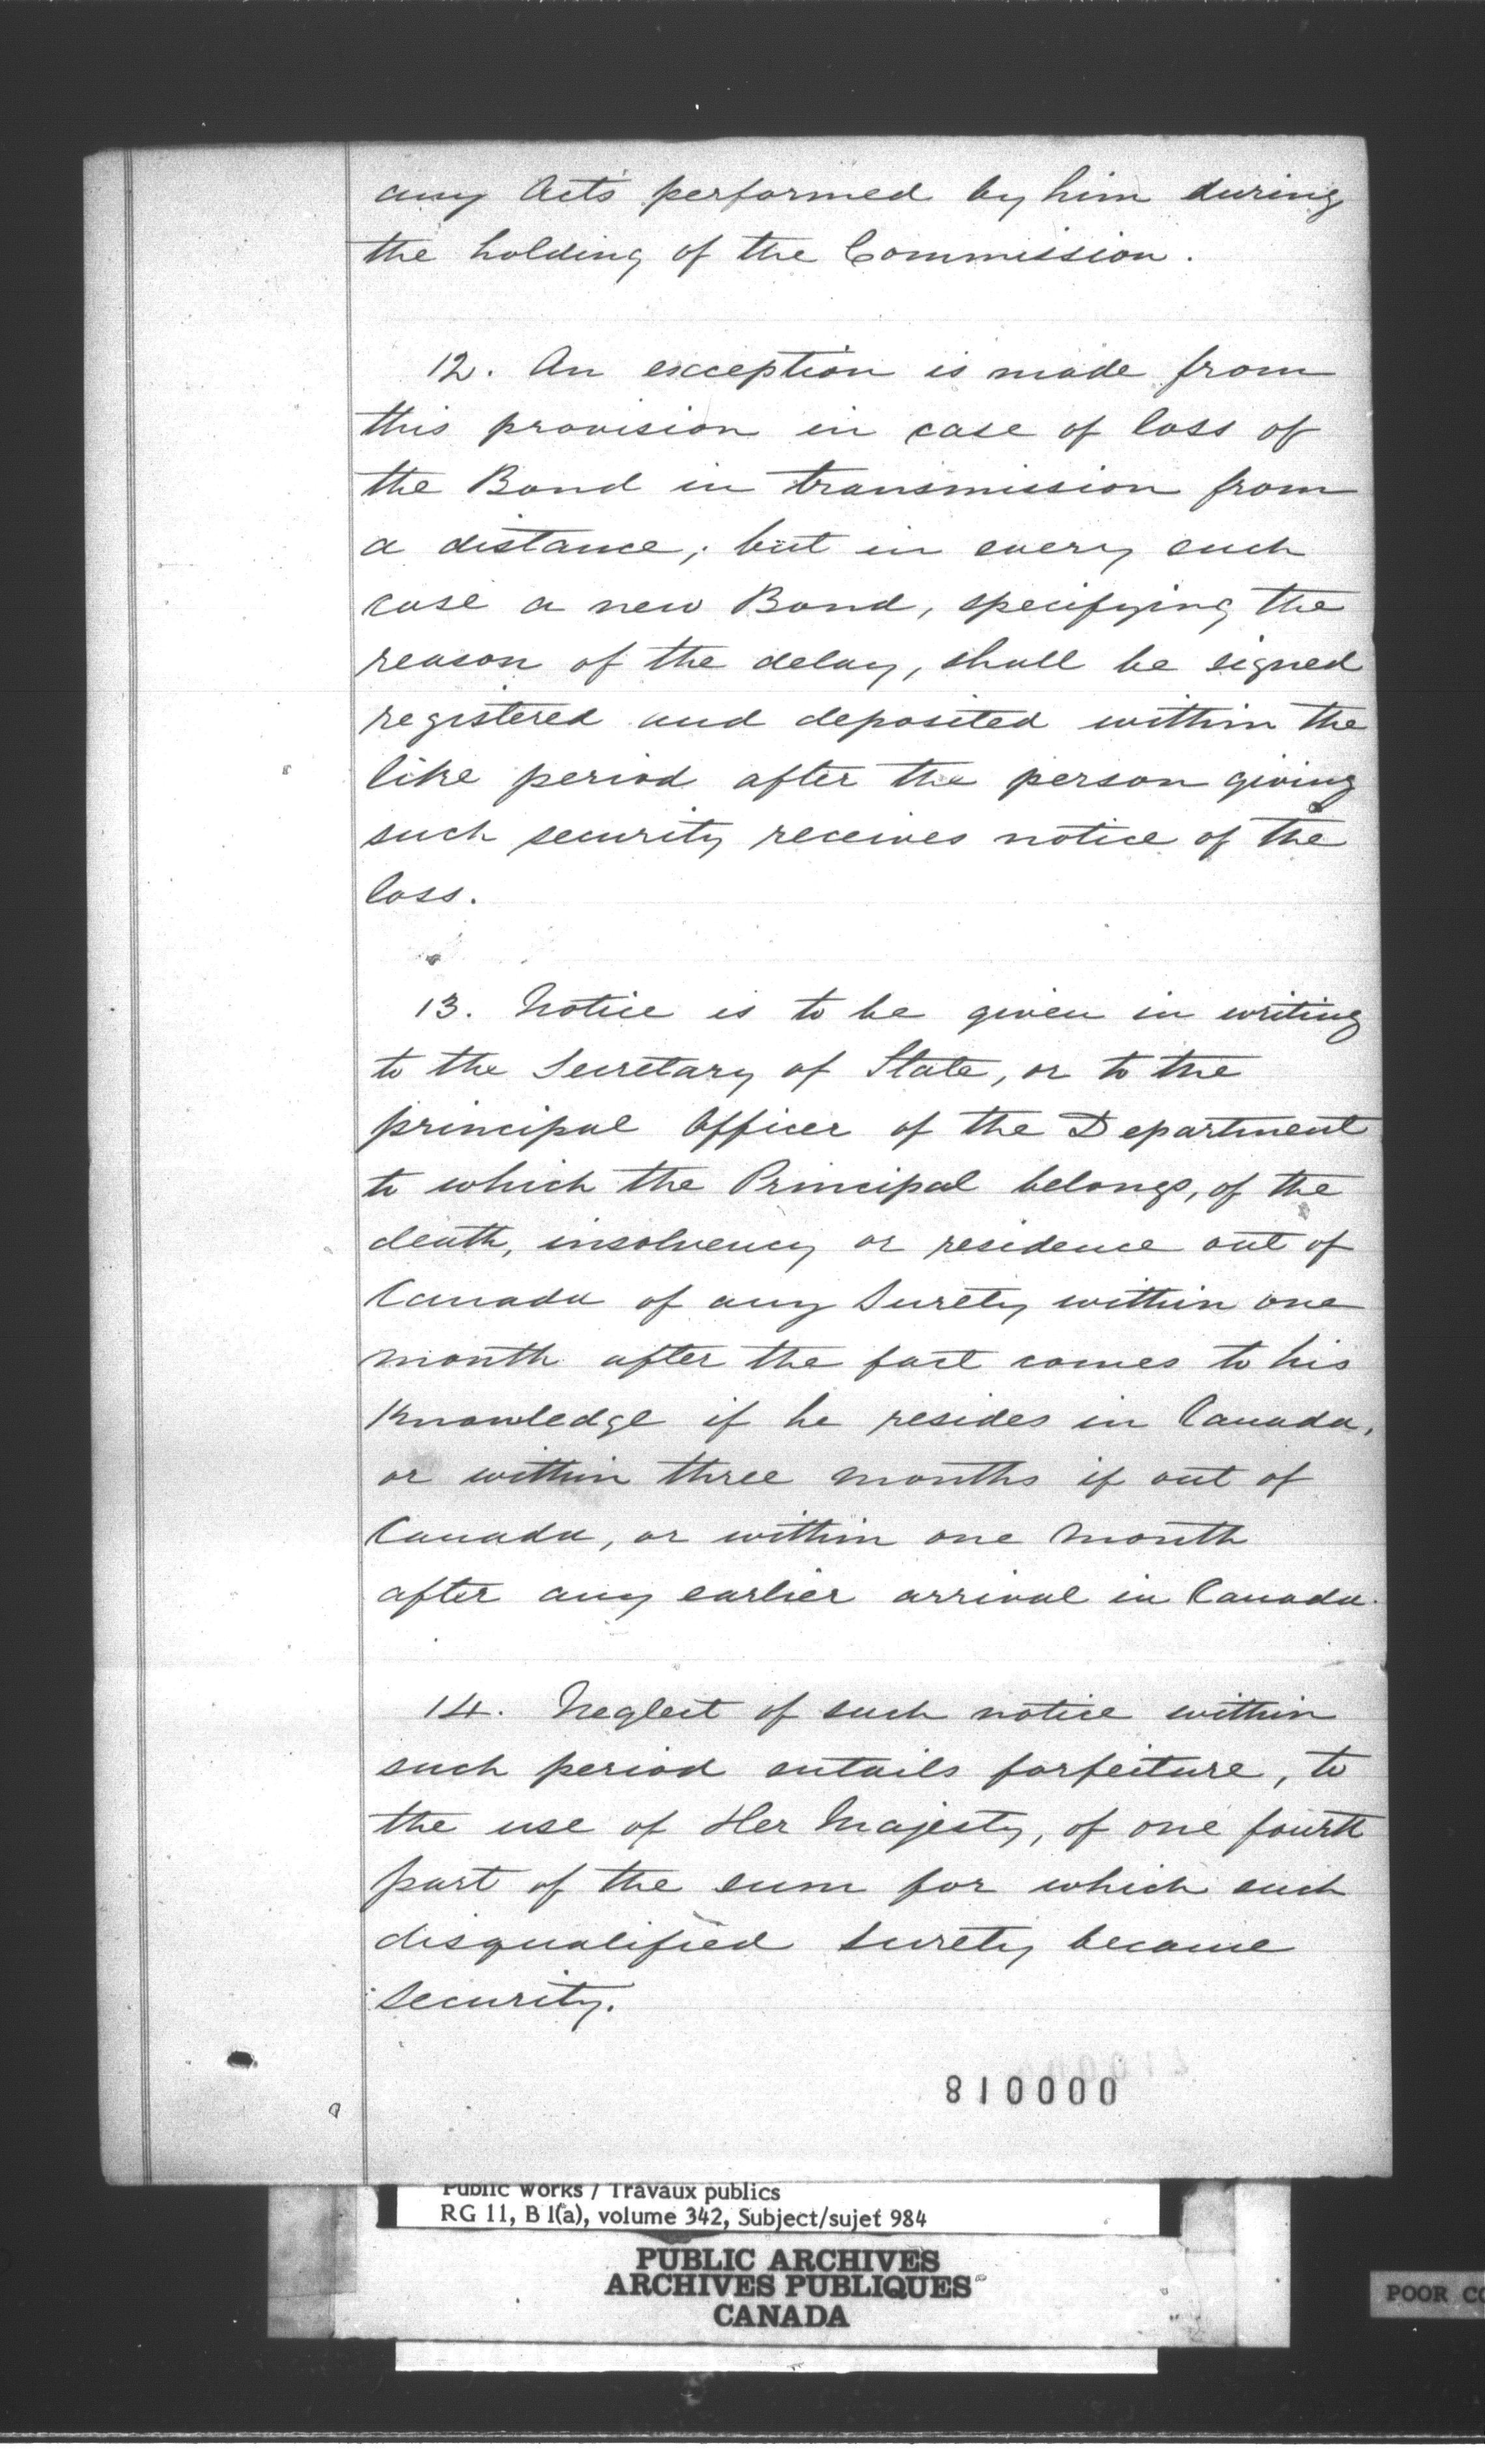 any Acts performed by him during
the holding of the Commission.
12. An exception is made from
this provision in case of loss of
the Bond in transmission from
a distance; but in every such
case a new Bond, specifying the
reason of the delay, shall be signed
registered and deposited within the
like period after the person giving
such security receives notice of the
loss.
13. Notice is to be given in writing
to the Secretary of State, or to the
principal Officer of the Department
to which the Principal belongs, of the
death, insolvency or residence out of
Canada of any Surety within one
month after the fact comes to his
knowledge if he resides in Canada,
or within three months if out of
Canada, or within one month
after any earlier arrival in Canada.
14. Neglect of such notice within
such period entails forfeiture, to
the use of Her Majesty, of one fourth
part of the sum for which such
disqualified Surety became
Security.
810000
Public Works / Travaux publics
RG 11, B 1(a), volume 342, Subject/sujet 984
PUBLIC ARCHIVES
ARCHIVES PUBLIQUES
CANADA
POOR CO